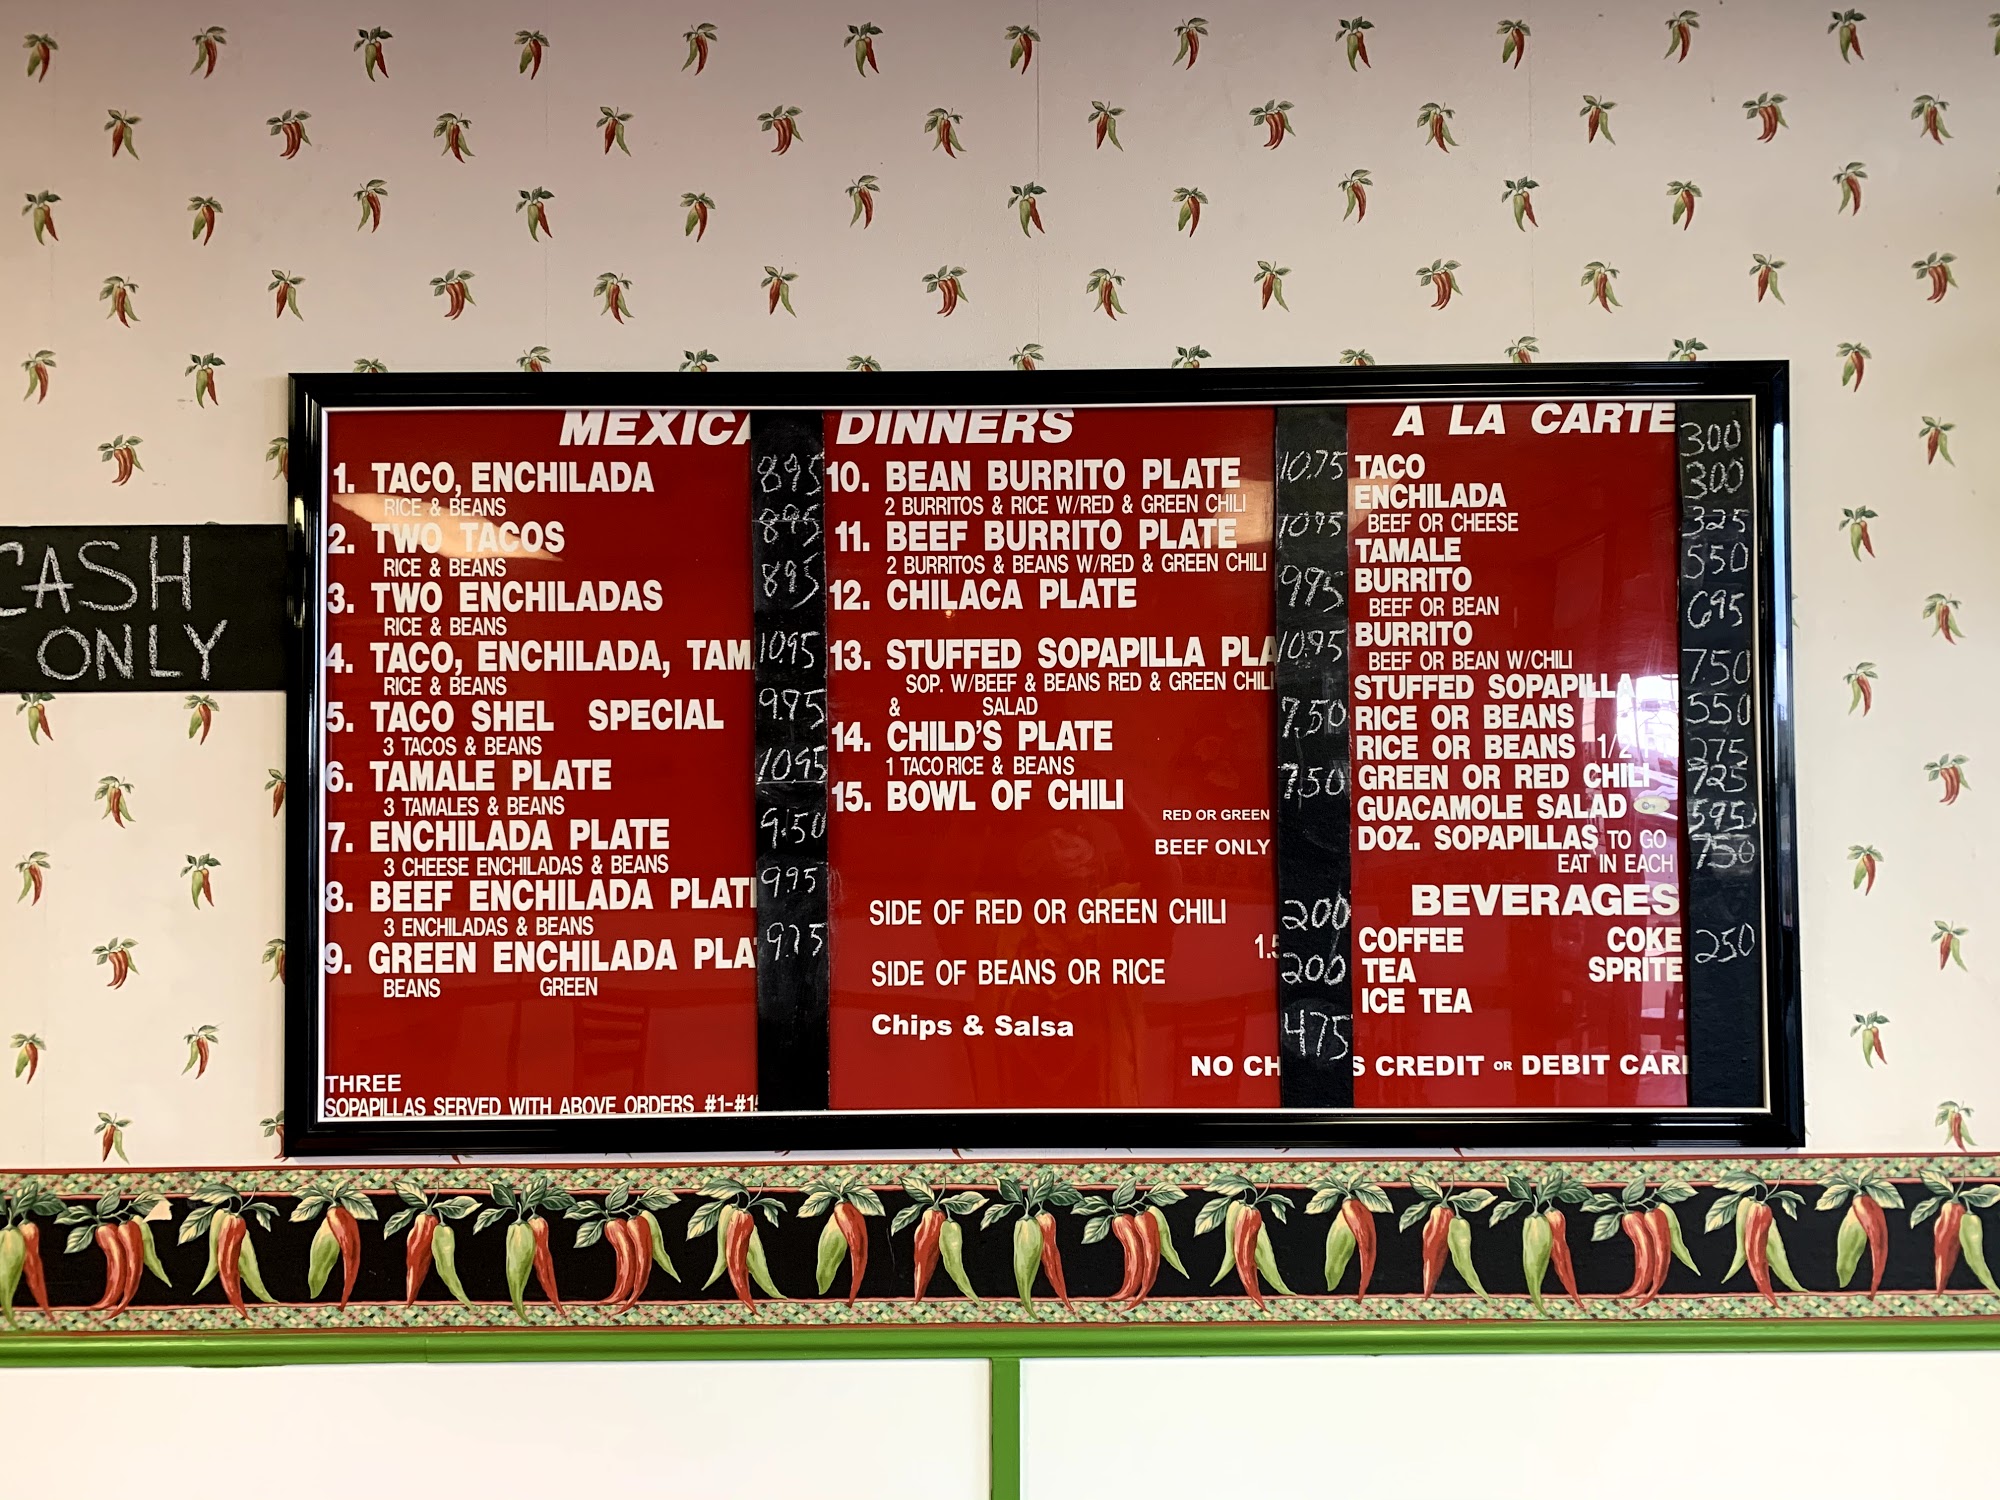 CASH
ONLY
MEXICA
1. TACO, ENCHILADA 8.95
RICE & BEANS
2. TWO TACOS 8.95
RICE & BEANS
3. TWO ENCHILADAS 8.95
RICE & BEANS
4. TACO, ENCHILADA, TAM 10.95
RICE & BEANS
5. TACO SHEL SPECIAL 9.95
3 TACOS & BEANS
6. TAMALE PLATE 10.95
3 TAMALES & BEANS
7. ENCHILADA PLATE 9.50
3 CHEESE ENCHILADAS & BEANS
8. BEEF ENCHILADA PLAT 9.95
3 ENCHILADAS & BEANS
9. GREEN ENCHILADA PLA
BEANS GREEN
THREE
SOPAPILLAS SERVED WITH ABOVE ORDERS #1-#1
DINNERS
10. BEAN BURRITO PLATE 10.75
2 BURRITOS & RICE W/RED & GREEN CHILI
11. BEEF BURRITO PLATE 10.95
2 BURRITOS & BEANS W/RED & GREEN CHILI
12. CHILACA PLATE 9.95
13. STUFFED SOPAPILLA PLA 10.95
SOP. W/BEEF & BEANS RED & GREEN CHILI
& SALAD
14. CHILD'S PLATE 7.50
1 TACO RICE & BEANS
15. BOWL OF CHILI 7.50
RED OR GREEN
BEEF ONLY
SIDE OF RED OR GREEN CHILI 200
1.5
SIDE OF BEANS OR RICE 200
Chips & Salsa 475
NO CH S CREDIT OR DEBIT CAR
A LA CARTE
TACO 300
ENCHILADA 300
BEEF OR CHEESE
TAMALE 325
BURRITO 550
BEEF OR BEAN
BURRITO 695
BEEF OR BEAN W/CHILI
STUFFED SOPAPILLA 750
RICE OR BEANS 550
RICE OR BEANS 1/2 275
GREEN OR RED CHILI 725
GUACAMOLE SALAD 595
DOZ. SOPAPILLAS TO GO 750
EAT IN EACH
BEVERAGES
COFFEE COKE 250
TEA SPRITE
ICE TEA